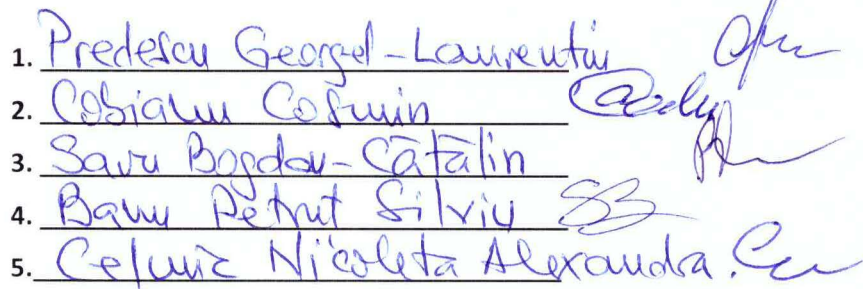 1. Predescu Georgel-Laurentiu
2. Cobianu Cosmin
3. Savu Bogdan-Cătălin
4. Banu Petrut Silviu
5. Nicoleta Alexandra.